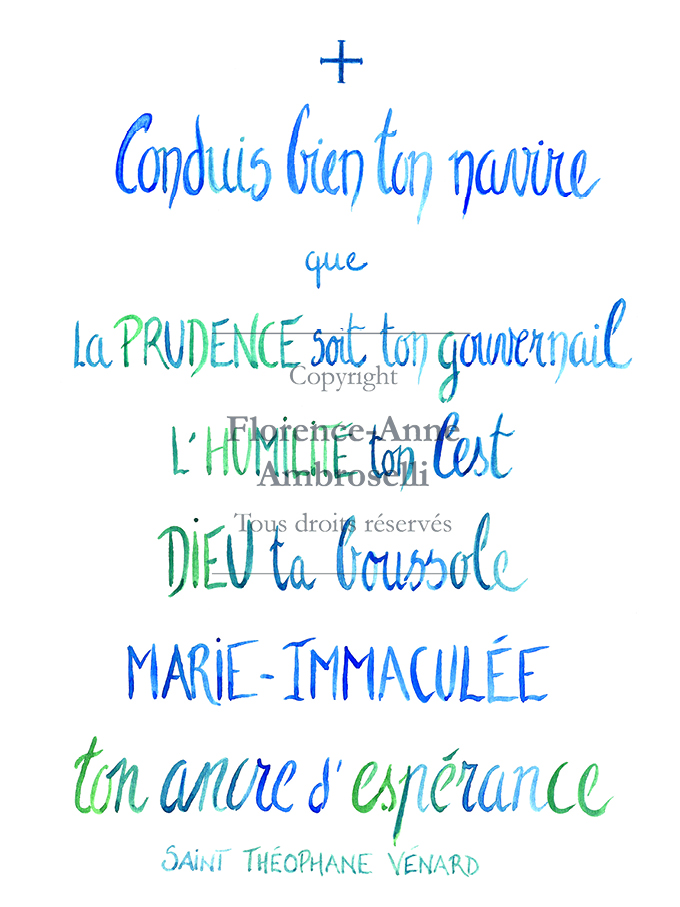 Conduis bien ton navire
que
La PRUDENCE soit ton gouvernail
Copyright
L'HUMILITÉ ton lest
Florence-Anne
Ambroselli
Tous droits réservés
DIEU ta boussole
MARIE-IMMACULÉE
ton ancre d'espérance
SAINT THÉOPHANE VÉNARD